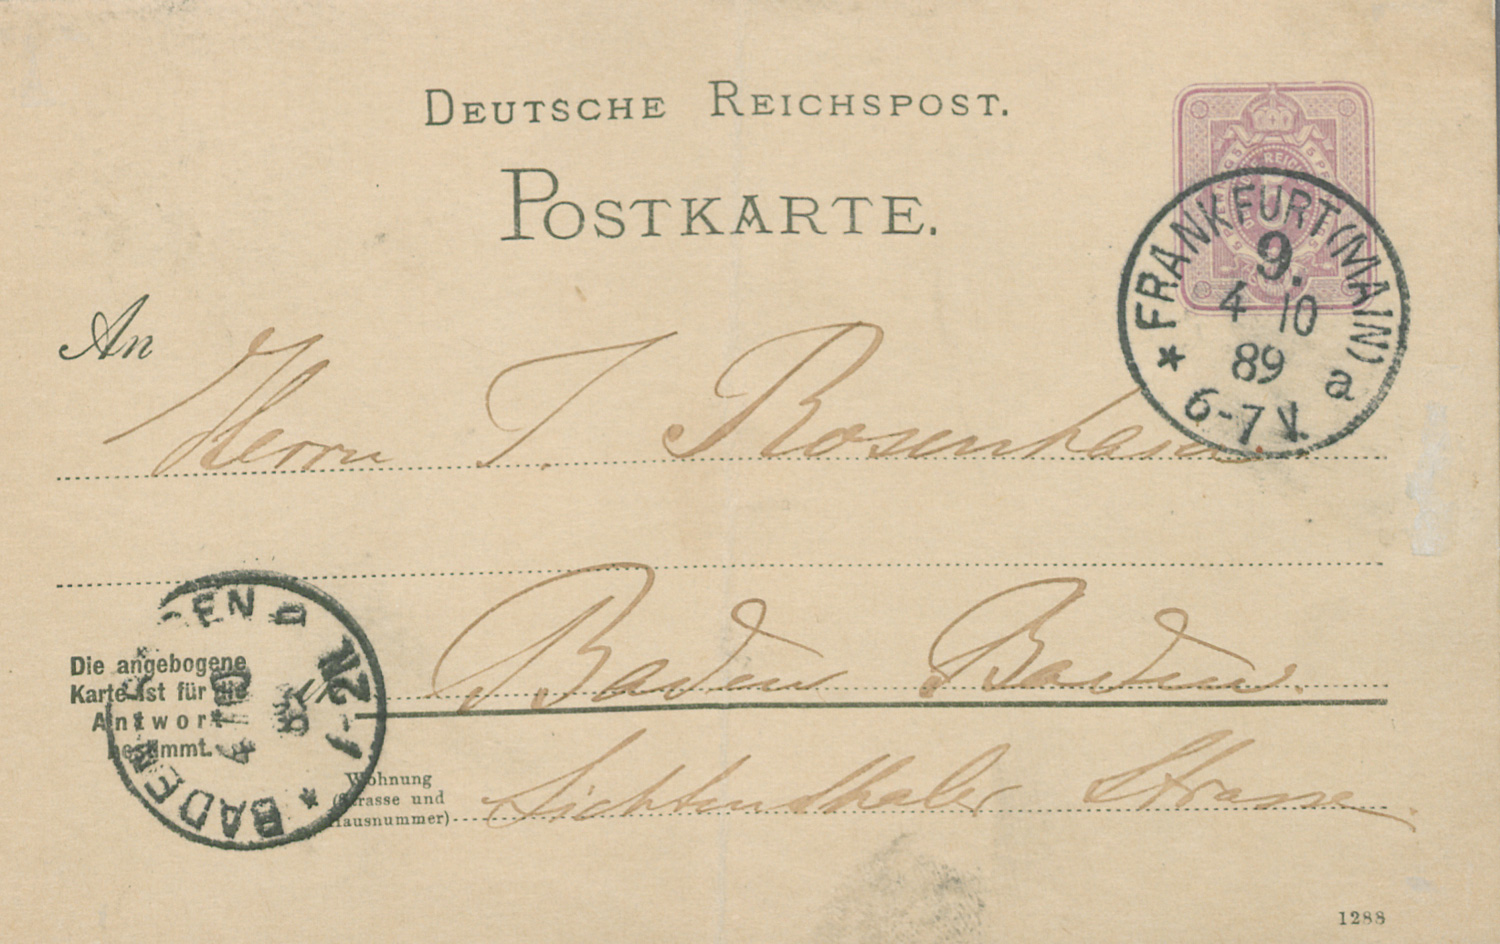 DEUTSCHE REICHSPOST.
POSTKARTE.
5 PFENNIG 5
REICHS
* FRANKFURT (MAIN) a
9.
4 10
89
6-7 V.
An
Herrn J. Rosenhain.
Baden Baden.
Die angebogene
Karte ist für die
Antwort
bestimmt.
in
BADEN-BADEN
4 10
89
1-2 N
Wohnung
(Strasse und
Hausnummer)
Lichtenthaler Strasse.
1288